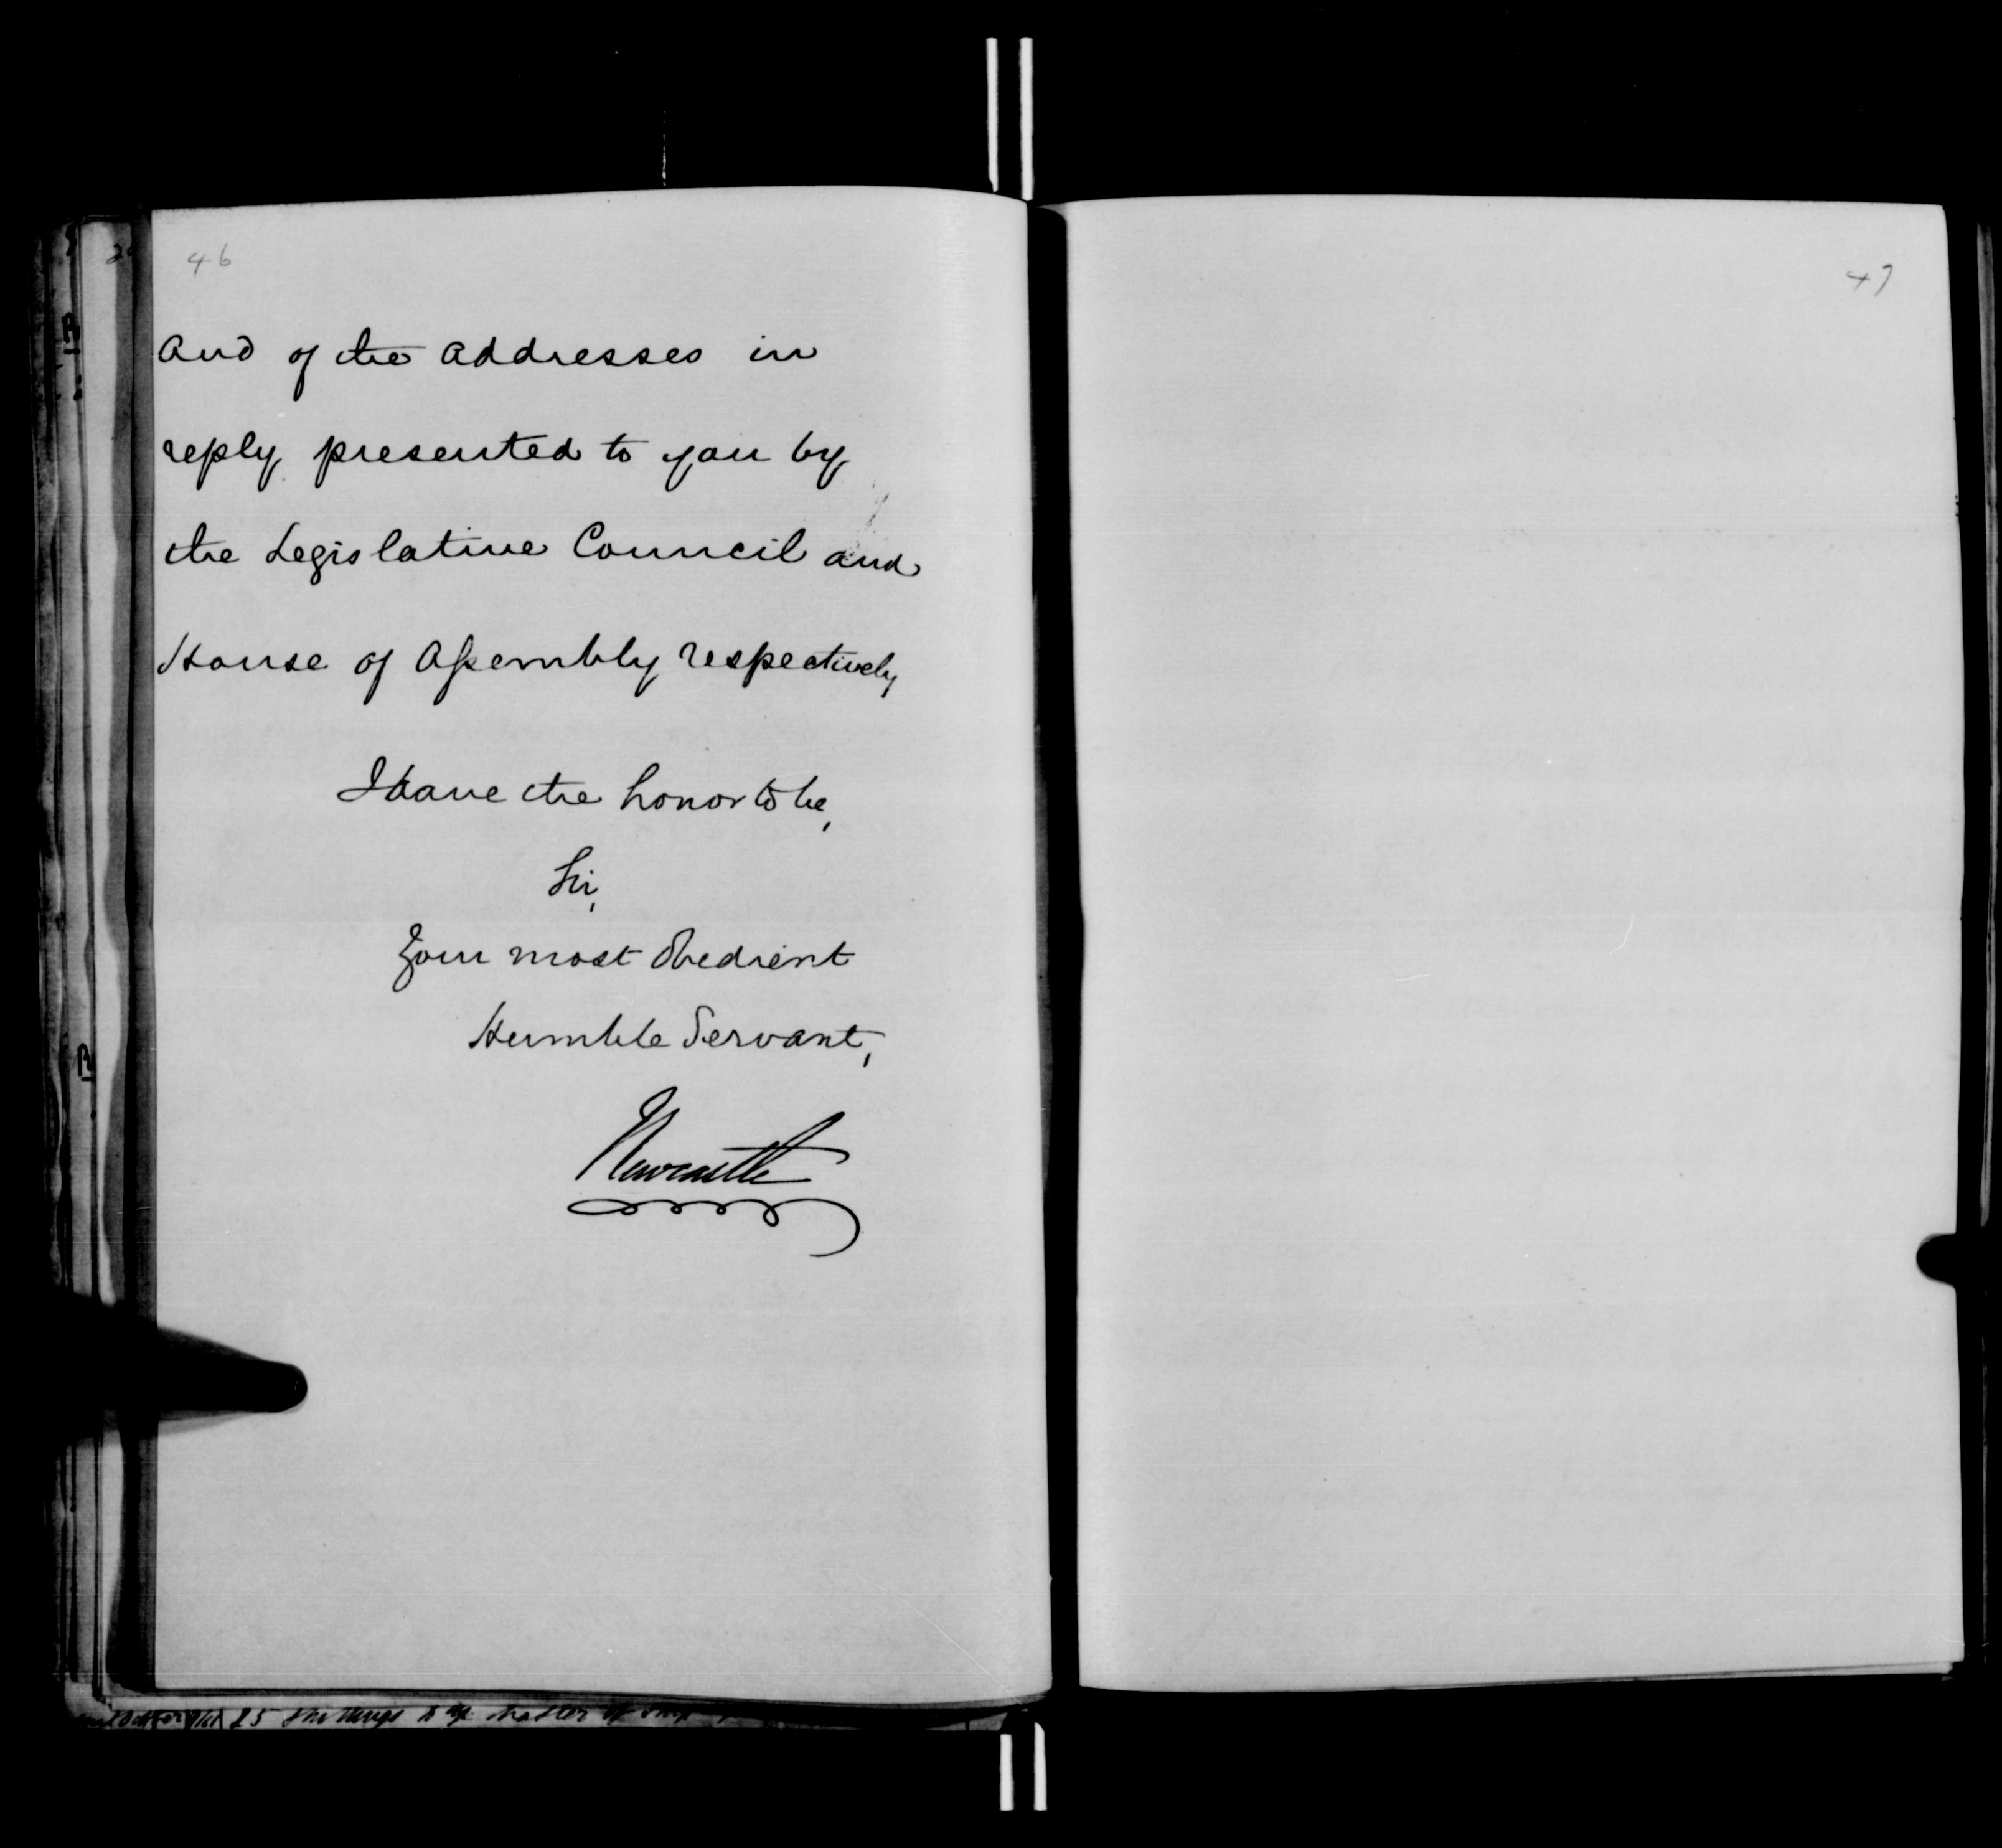 46
and of the addresses in
reply presented to you by
the Legislative Council and
House of Assembly respectively
I have the honor to be,
Sir,
Your most obedient
Humble Servant,
Newcastle
47